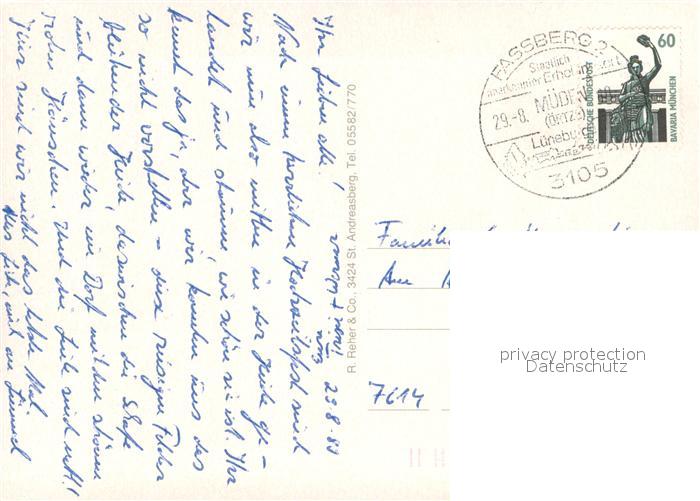 Ihr Lieben alle!
29.8.89
Nach einem herrlichen Hochzeitsfest sind
wir nun also mitten in der Heide ge-
landet und staunen, wie schön sie ist. Ihr
kennt das ja, aber wir konnten uns das
so nicht vorstellen – diese riesigen Felder
blühender Heide, dazwischen die Schafe
und dann wieder im Dorf mit den schönen
Häuschen. Und die Leute sind nett!
Hier sind wir nicht das letzte Mal
R. Reher & Co., 3424 St. Andreasberg, Tel. 05582/770
FASSBERG 2
Staatlich
anerkannter Erholungsort
29.-8.
MÜDEN
(ÖRTZE)
Lüneburg
3105
60
DEUTSCHE BUNDESPOST
BAVARIA MÜNCHEN
Familie
Am
7614
privacy protection
Datenschutz